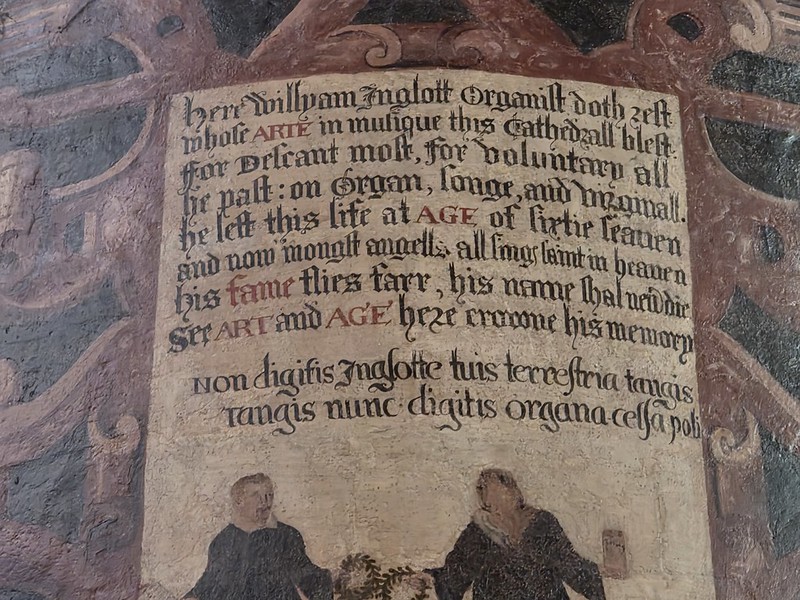 Here Willyam Inglott Organist doth rest
whose ARTE in musique this Cathedrall blest:
For Descant most, for Voluntary all
he past: on Organ, songe, and Virginall.
he left this life at AGE of sixtie seauen
and now 'mongst angells all sings saint in heauen
his fame flies farr, his name shal neu'r die
See ART and AGE here crowne his memory
Non digitis Inglotte tuis terrestria tangis
Tangis nunc digitis organa celsa poli